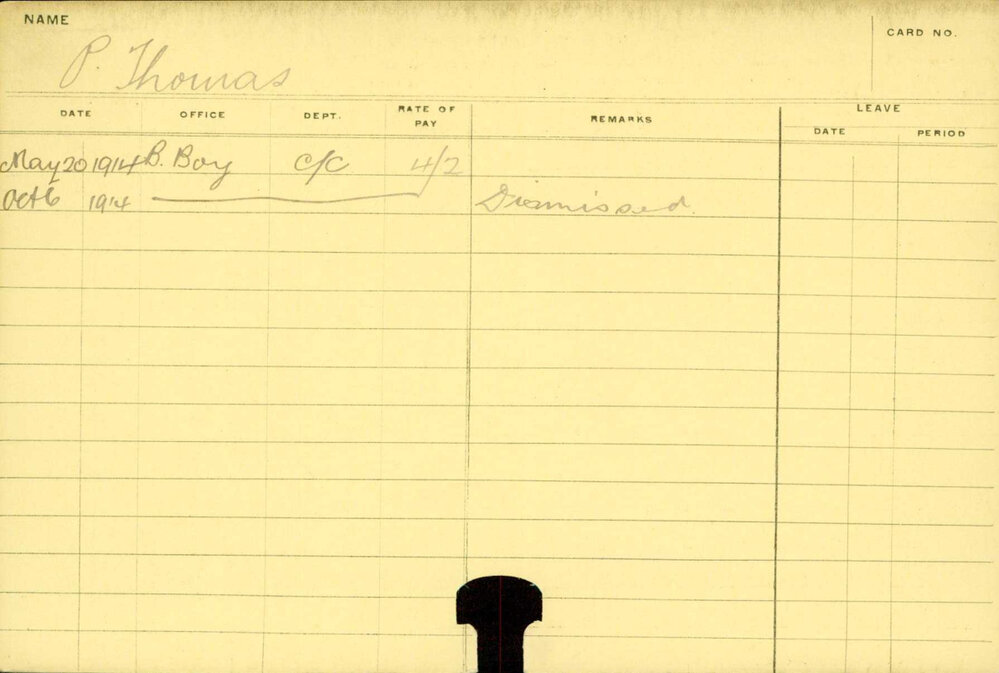 NAME
CARD NO.
P. Thomas
DATE OFFICE DEPT. RATE OF PAY REMARKS LEAVE
DATE PERIOD
May 20 1914 B. Boy C/C 4/2
Oct 6 1914 Dismissed